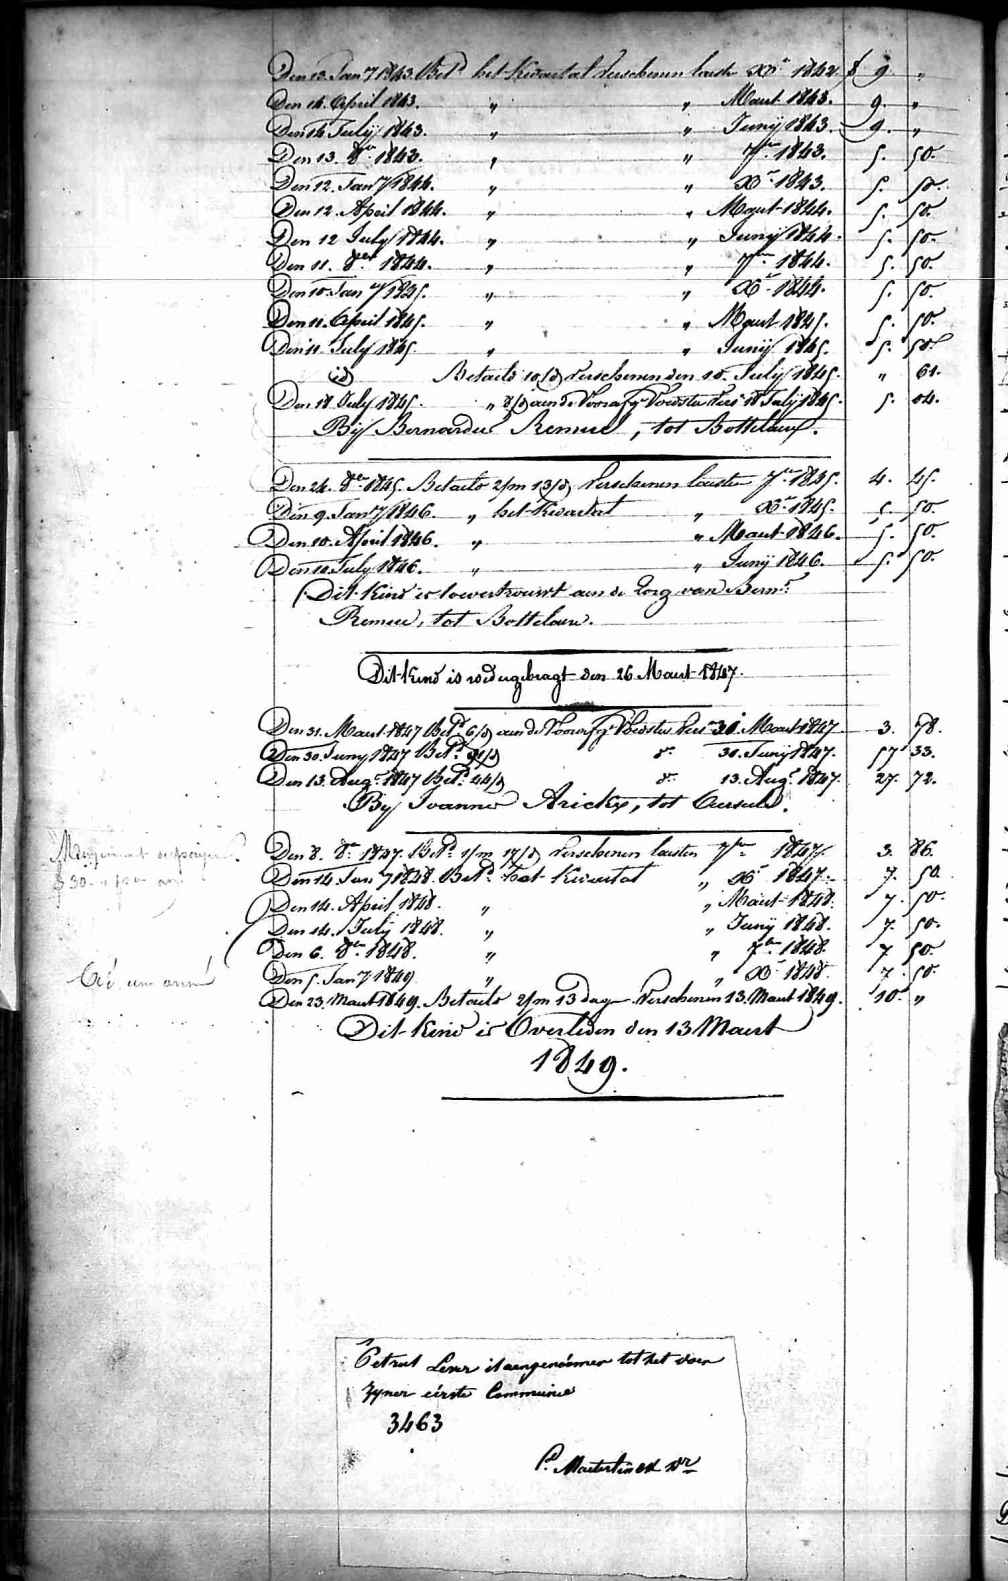 Den 13. Jan.y 1843. Bet.d het Kwartal Verschenen laaste Xr 1842. f 9 "
Den 14. April 1843. " " Maart 1843. 9. "
Den 14 Julij 1843. " " Junij 1843. 9. "
Den 13. 8er 1843. " " 7er 1843. 5. 50.
Den 12. Jany 1844. " " Xr 1843. 5. 50.
Den 12. April 1844. " " Maart 1844. 5. 50.
Den 12 July 1844. " " Junij 1844. 5. 50.
Den 11. 8er 1844. " " 7er 1844. 5. 50.
Den 10 Jany 1845. " " Xr 1844. 5. 50.
Den 11. April 1845. " " Maart 1845. 5. 50.
Den 11 July 1845. " " Junij 1845. 5. 50.
id Betaeld 10/d Verschenen den 10. July 1845. " 61.
Den 18 July 1845. " aen de Voorafg. Voedster Vers. 18 July 1845. 5. 04.
Bij Bernardus Remeue, tot Bottelaere.
Den 24. 8er 1845. Betaeld 2/m 13/d Verschenen laasten 7er 1845. 4. 45.
Den 9. Jany 1846. " het Kwartal " Xr 1845. 5. 50.
Den 10. April 1846. " " Maart 1846. 5. 50.
Den 10. July 1846. " " Junij 1846. 5. 50.
Dit Kind is toevertrouwt aen de Zorg van Bern.s
Remeue, tot Bottelaere.
Dit Kind is wedergebragt den 26 Maart 1847.
Den 31. Maart 1847 Bet.d 6/d aen de Voorafg. Voedster Vers. 31 Maart 1847 3. 78.
Den 30. Juny 1847 Bet.d 91/d do 30. Junij 1847. 57 33.
Den 13. Aug. 1847 Bet.d 44/d do 13. Aug. 1847. 27. 72.
By Joanne Arickx, tot Aersele.
Den 8. 8r 1847. Bet.d 1/m 17/d Verschenen laasten 7er 1847. 3. 86.
Den 14. Jany 1848. Bet.d het Kwartal " Xr 1847. 7. 50.
Den 14. April 1848. " " Maart 1848. 7. 50.
Den 14. July 1848. " " Junij 1848. 7. 50.
Den 6. 8er 1848. " " 7er 1848. 7 50.
Den 5. Jany 1849 " " Xr 1848. 7. 50.
Den 23. Maart 1849. Betaeld 2/m 13 dag Verschenen 13. Maart 1849. 10. "
Dit Kind is Overleden den 13 Maert
1849.
Petrus Lever is aengenomen tot het doen
Zyner eerste Communie
3463
P. Maeterlinck